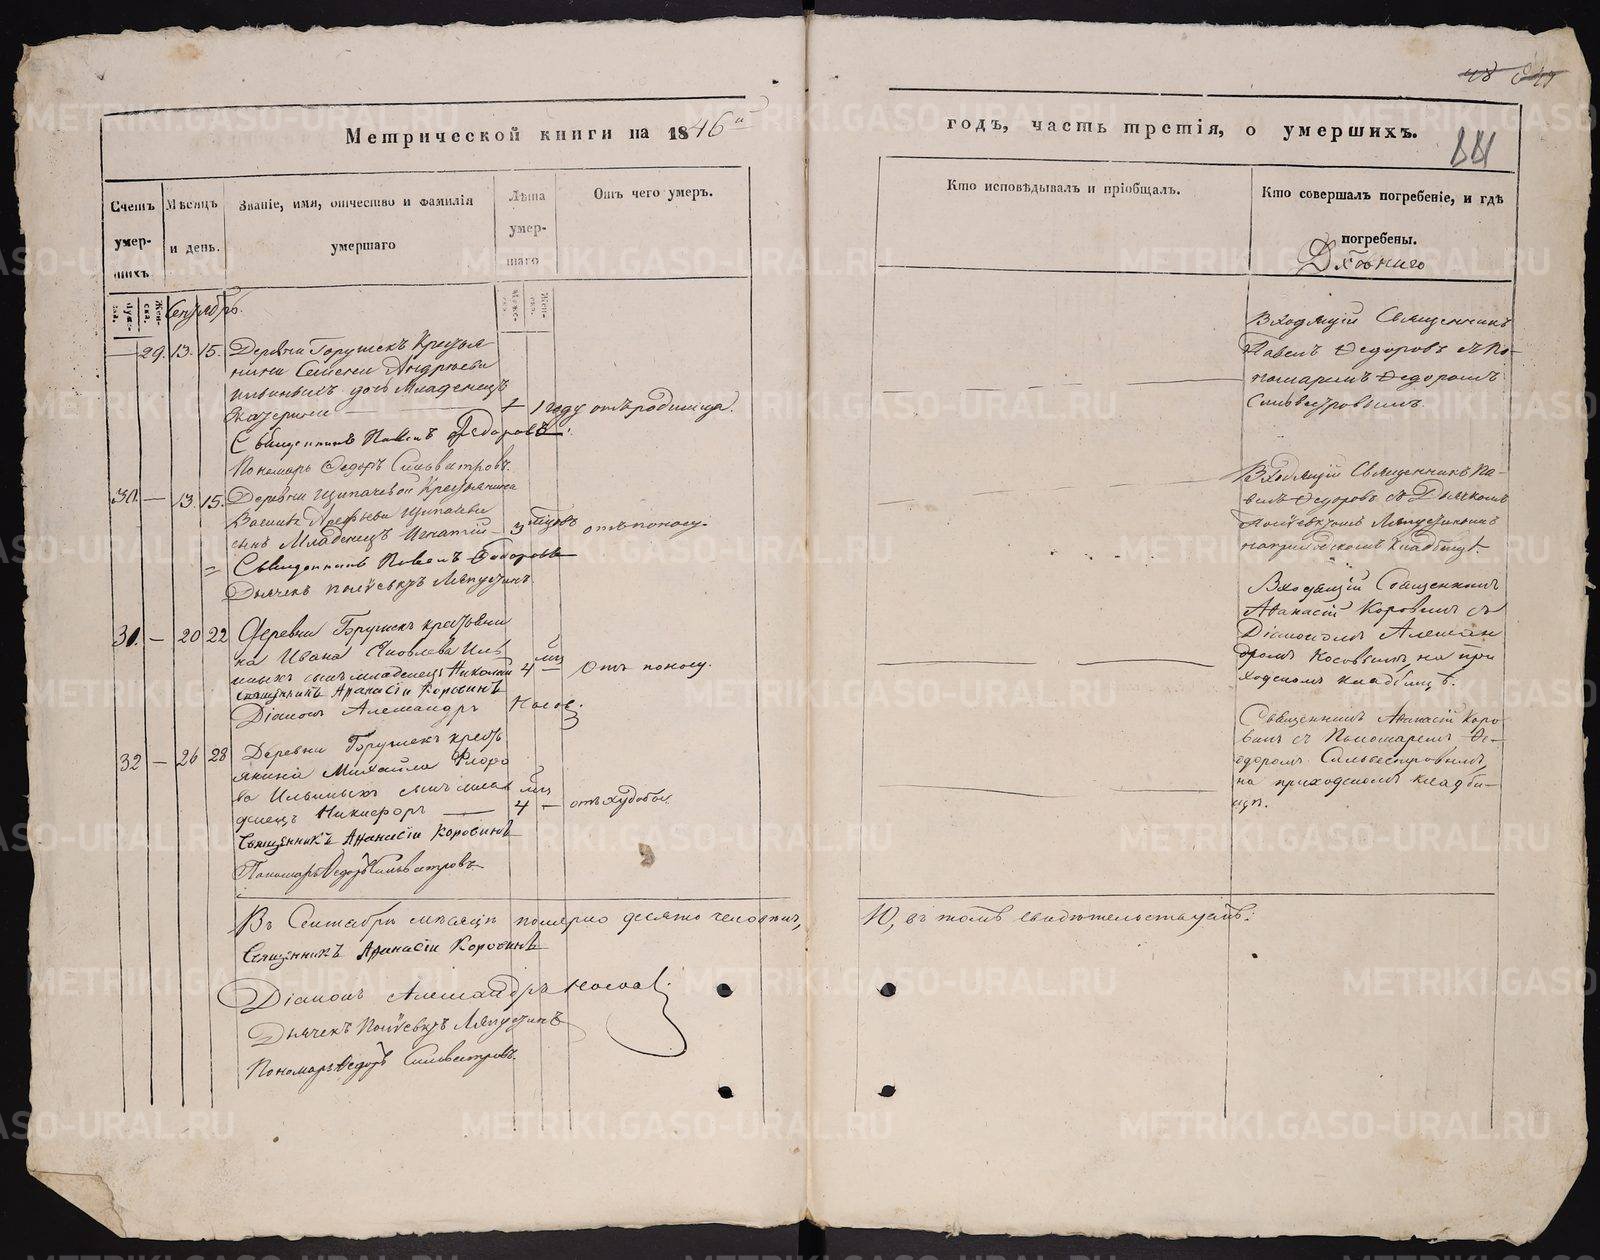 Метрической книги на 1846й
годъ, часть третія, о умершихъ.
Счетъ умер-шихъ
Мѣсяцъ и день.
Званіе, имя, отчество и фамилія умершаго
Лѣта умер-шаго
Отъ чего умеръ.
Кто исповѣдывалъ и пріобщалъ.
Кто совершалъ погребеніе, и гдѣ погребены.
Сентябрь.
29. 13. 15. Деревни Горушекъ Крестья
нина Семена Андреева
дочь Младенецъ
Екатерина
1 году отъ родимца.
Священникъ Павелъ Федоровъ.
Пономарь Федоръ Сильвестровъ.
Входящій Священникъ
Павелъ Федоровъ съ По-
номаремъ Федоромъ
Сильвестровымъ.
30 — 13. 15. Деревни Щипачевой Крестьянина
Щипачева
сынъ Младенецъ Игнатій
3 отъ поносу.
Священникъ Павелъ Федоровъ
Дьячекъ Ляпустинъ
Входящій Священникъ Па-
велъ Федоровъ съ Дьячкомъ
Ляпустинымъ
на приходскомъ кладбищѣ.
31. — 20 22 Деревни Горушекъ крестьяни
на Ивана Яковлева Иль
иныхъ сынъ младенецъ Николай
4 мц Отъ поносу.
Священникъ Афанасій Коровинъ
Діаконъ Александръ Носов.
Входящій Священникъ
Афанасій Коровинъ съ
Діакономъ Алексан
дромъ Носовымъ, на при
ходскомъ кладбищѣ.
32 — 26 28 Деревни Горушекъ кресть
янина Михайла Флоро
ва Ильиныхъ сынъ млад
енецъ Никифоръ
4 мц отъ худобы.
Священникъ Афанасій Коровинъ
Пономарь Федоръ Сильвестровъ
Священникъ Афанасій Коро-
винъ съ Пономаремъ Фе-
доромъ Сильвестровымъ,
на приходскомъ кладби-
щѣ.
Въ Сентябрѣ мѣсяцѣ померло десять человѣкъ,
10, въ томъ свидѣтельствуемъ:
Священникъ Афанасій Коровинъ
Діаконъ Александръ Носовъ.
Дьячекъ Ляпустинъ
Пономарь Федоръ Сильвестровъ.
METRIKI.GASO-URAL.RU